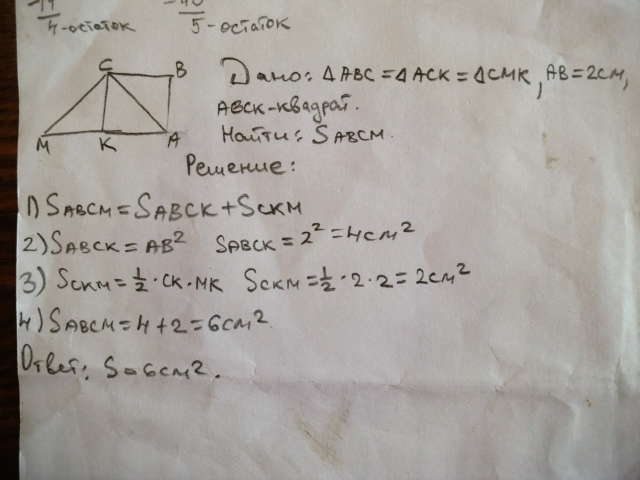 4-остаток 5-остаток
C B
M K A
Дано: △ABC=△ACK=△CMK, AB=2см,
ABCK-квадрат.
Найти: SABCM.
Решение:
1) SABCM=SABCK+SCKM
2) SABCK=AB² SABCK=2²=4см²
3) SCKM=½·CK·MK SCKM=½·2·2=2см²
4) SABCM=4+2=6см²
Ответ: S=6см².